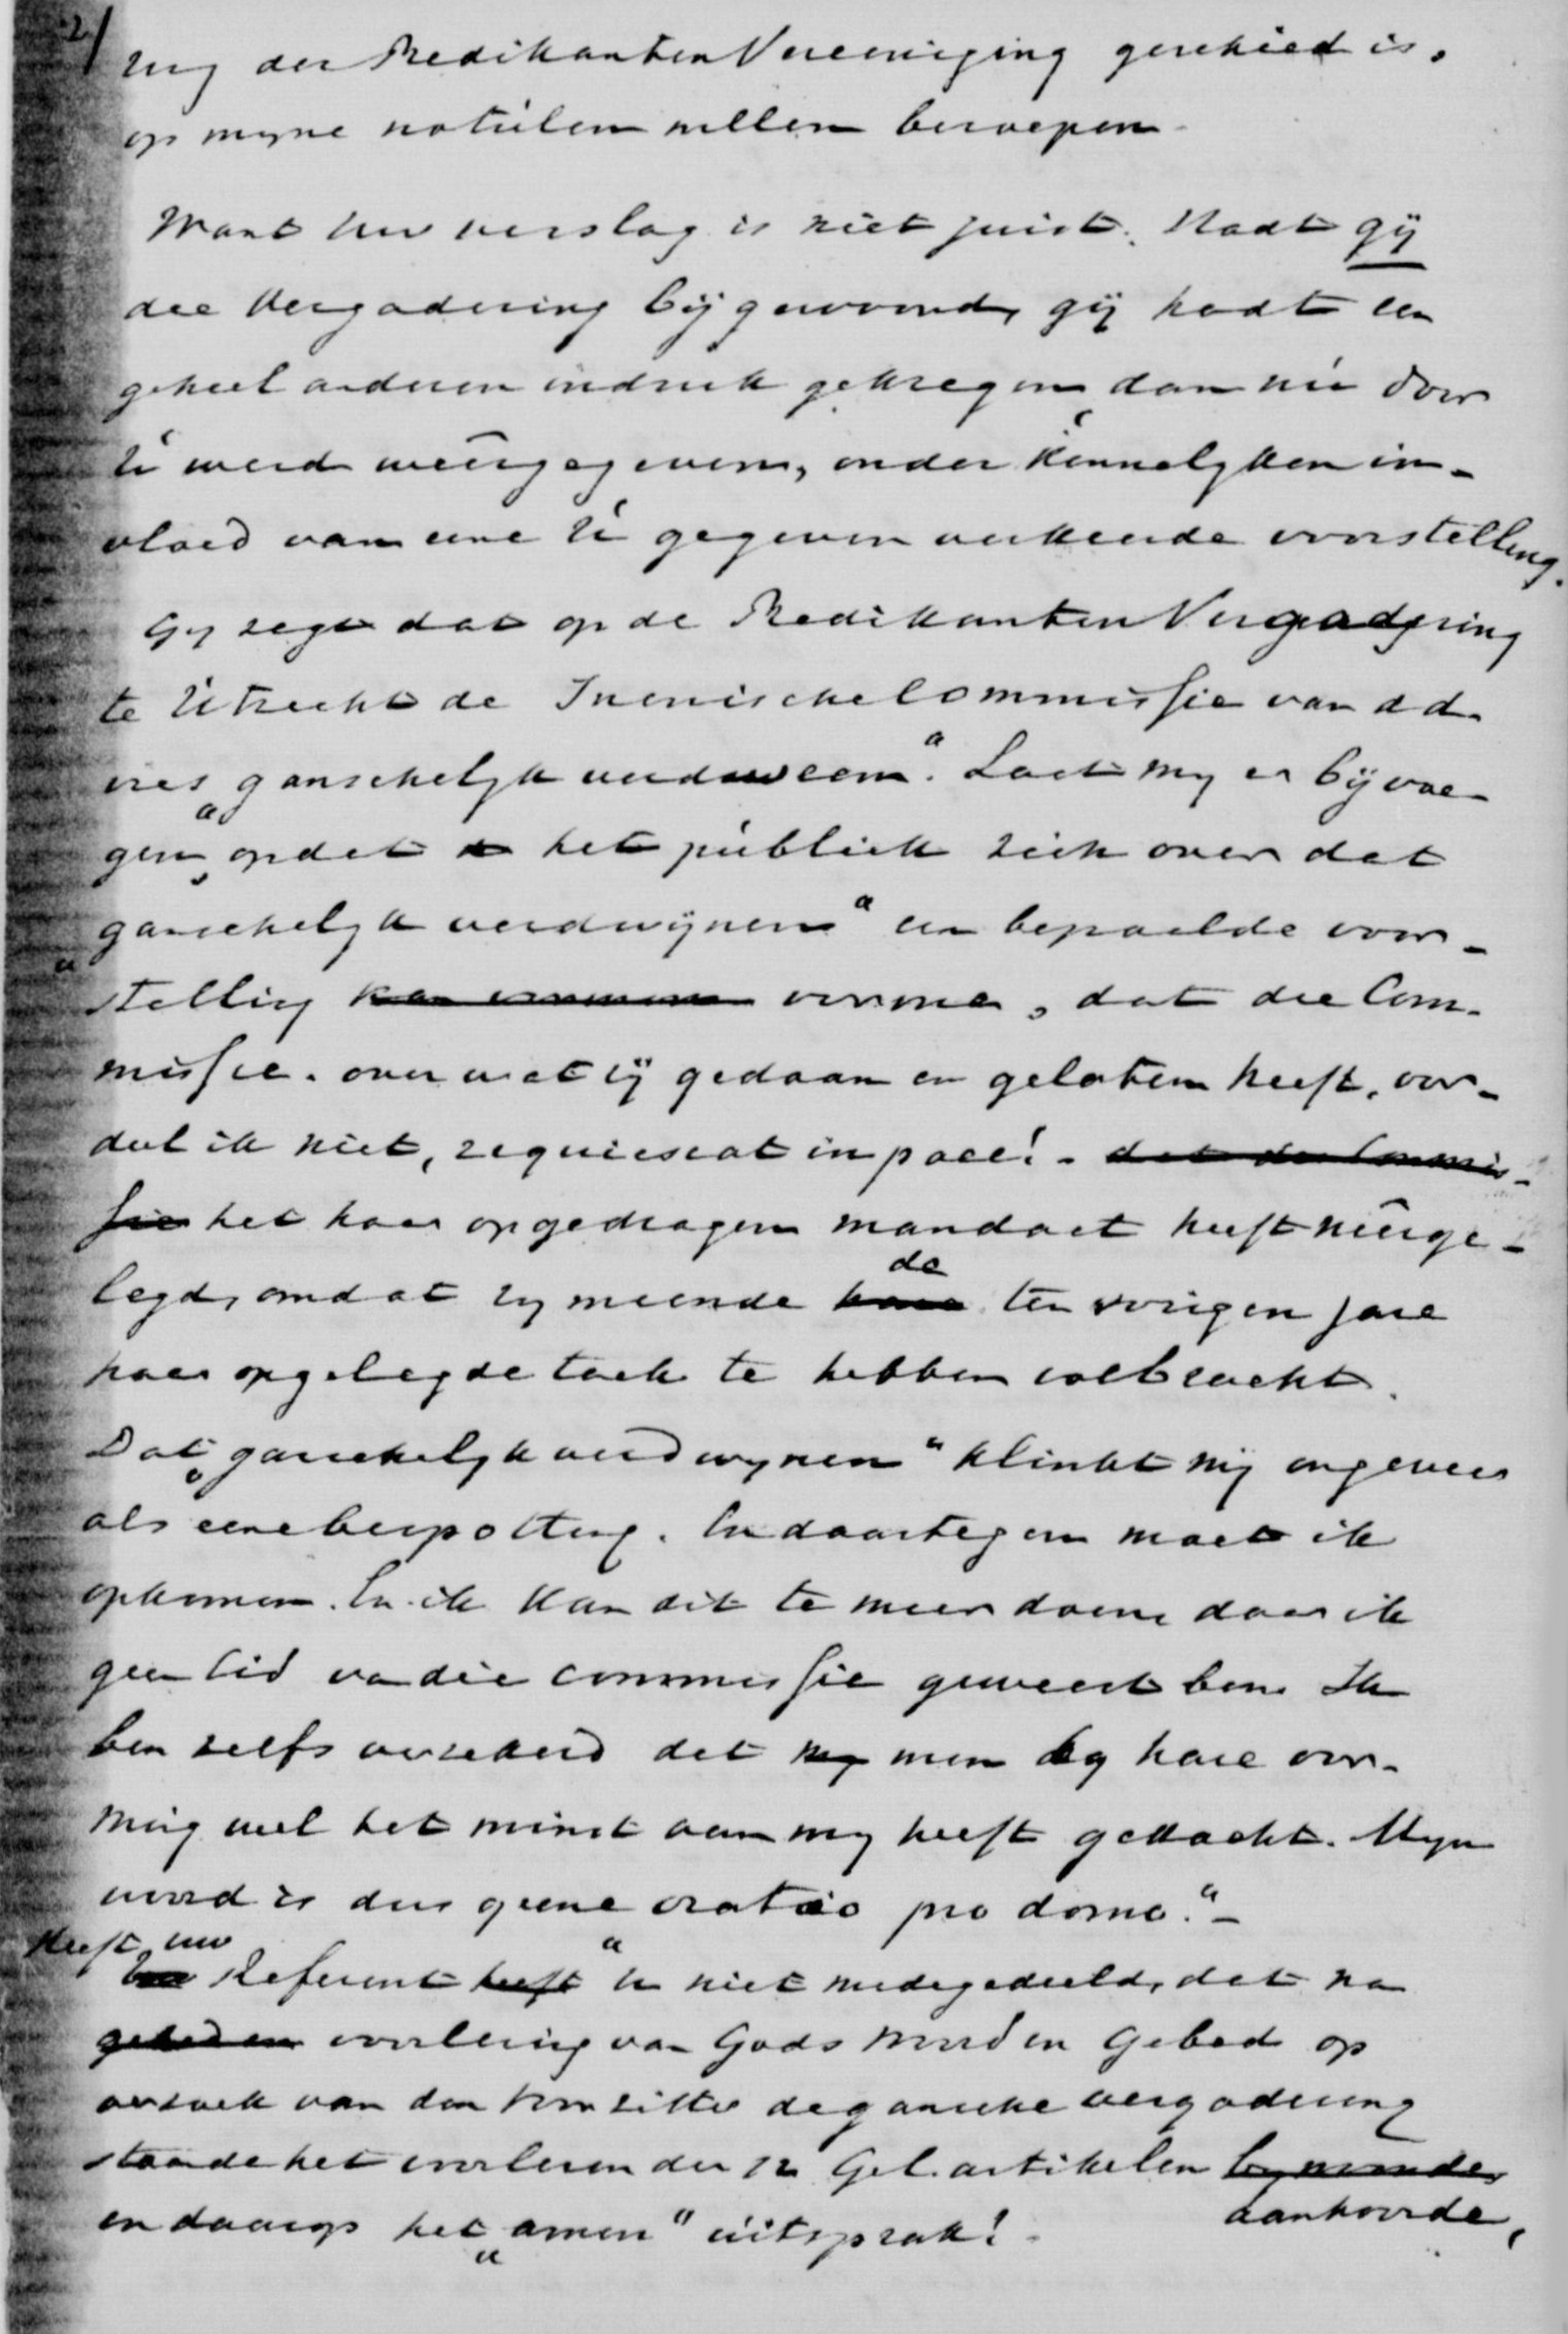 2/
ring der Predikanten Vereeniging geschied is,
op myne notulen willen beroepen.
Want uw verslag is niet juist. Hadt gij
die Vergadering bijgewoond, gij hadt een
geheel anderen indruk gekregen dan nu door
U werd weêrgegeven, onder kennelyken in-
vloed van eene U gegeven verkeerde voorstelling.
Gy zegt dat op de Predikanten Vergadering
te Utrecht de Irenische Commissie van ad
vies „ganschelyk verdween". Laat my er bijvoe-
gen, opdat het publiek zich over dat
„ganschelyk verdwijnen" een bepaalde voor-
stelling vorme, dat die Com-
missie. over wat zij gedaan en gelaten heeft, oor-
deel ik niet, requiescat in pace! - dat de Commis-
sie het haar opgedragen mandaat heeft neêrge-
legd, omdat zy meende de ten vorigen jare
haar opgelegde taak te hebben volbracht.
Dat „ganschelyk verdwynen" klinkt mij ongeveer
als eene bespotting. En daartegen moet ik
opkomen. En ik kan dit te meer doen, daar ik
geen lid van die commissie geweest ben. Ik
ben zelfs verzekerd dat men by hare vor-
ming wel het minst aan my heeft gedacht. Myn
woord is dus geene „oratio pro domo." -
Heeft uw Referent U niet medegedeeld, dat na
voorlezing van Gods Woord en Gebed op
verzoek van den Voorzitter de gansche vergadering
staande het voorlezen der 12 Gel. artikelen
aanhoorde,
en daarop het „amen" uitsprak!